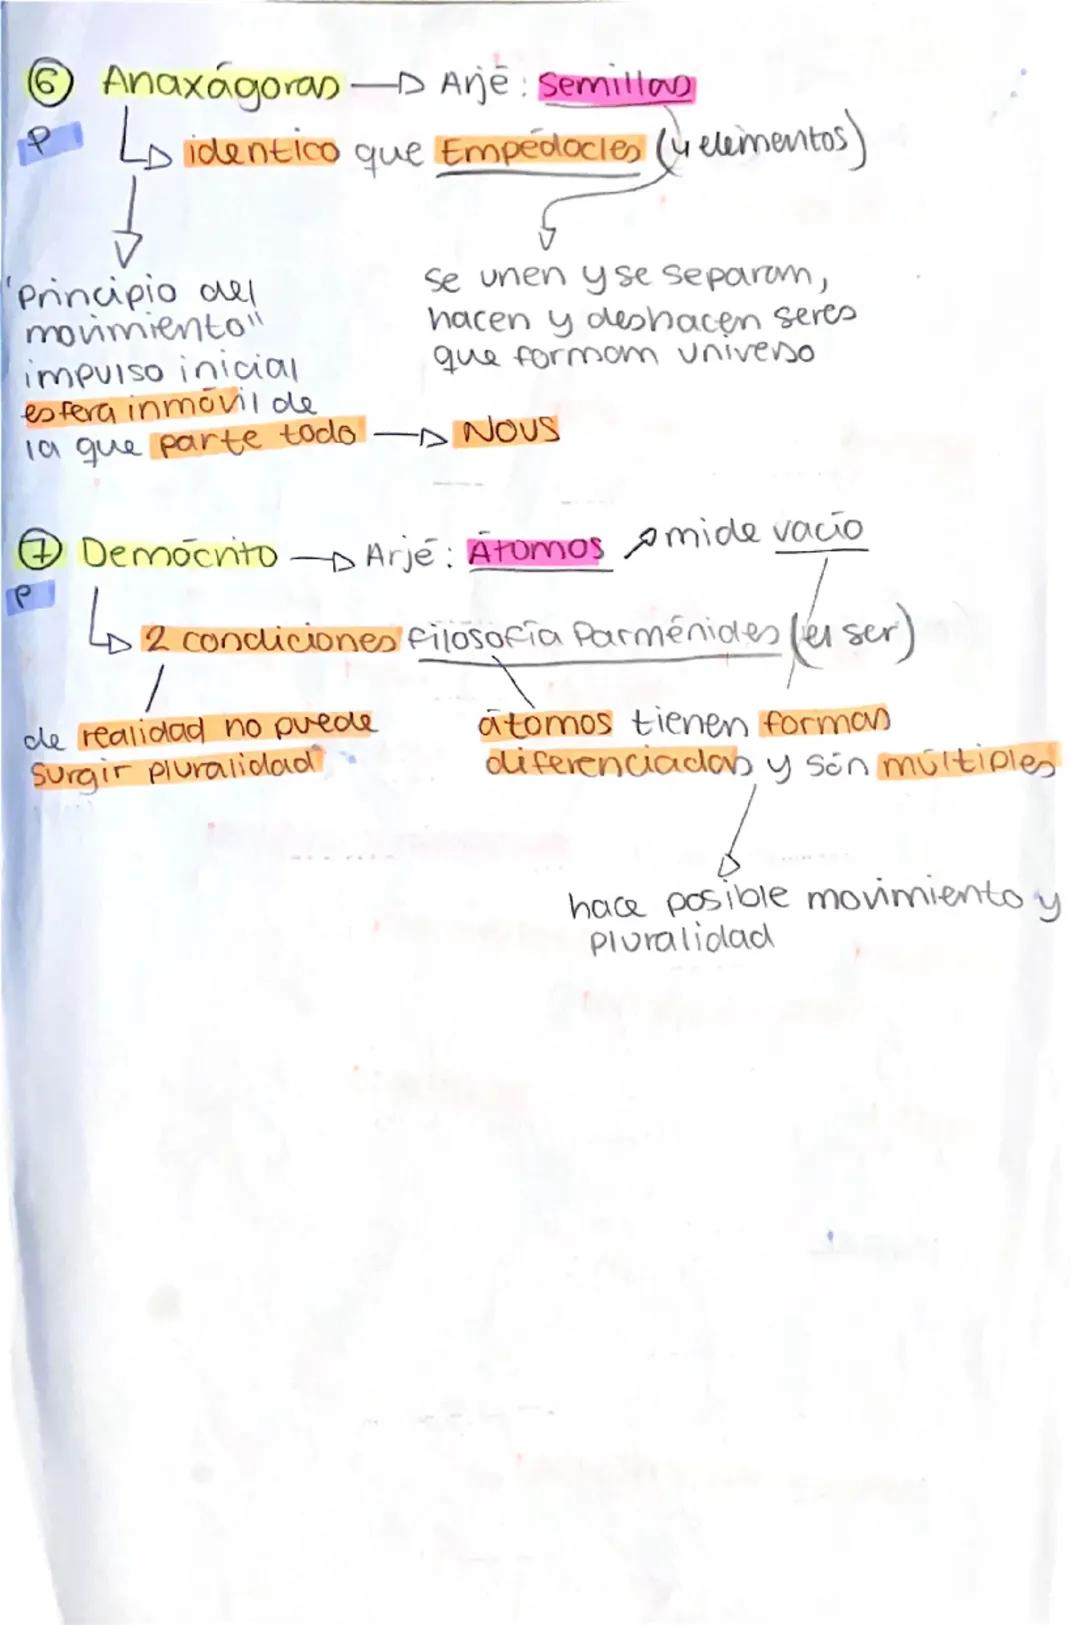 6 Anaxágoras → Arjé: Semillas
P
identico que Empédocles (4 elementos)
"Principio del
movimiento"
impulso inicial
esfera inmóvil de
la que parte todo → NOUS
se unen y se separam,
hacen y deshacen seres
que formam universo
7 Demócrito → Arjé: Átomos → mide vacío
P
2 condiciones filosofía Parménides (el ser)
de realidad no puede
surgir pluralidad
átomos tienen formas
diferenciadas y són múltiples
hace posible movimiento y
pluralidad